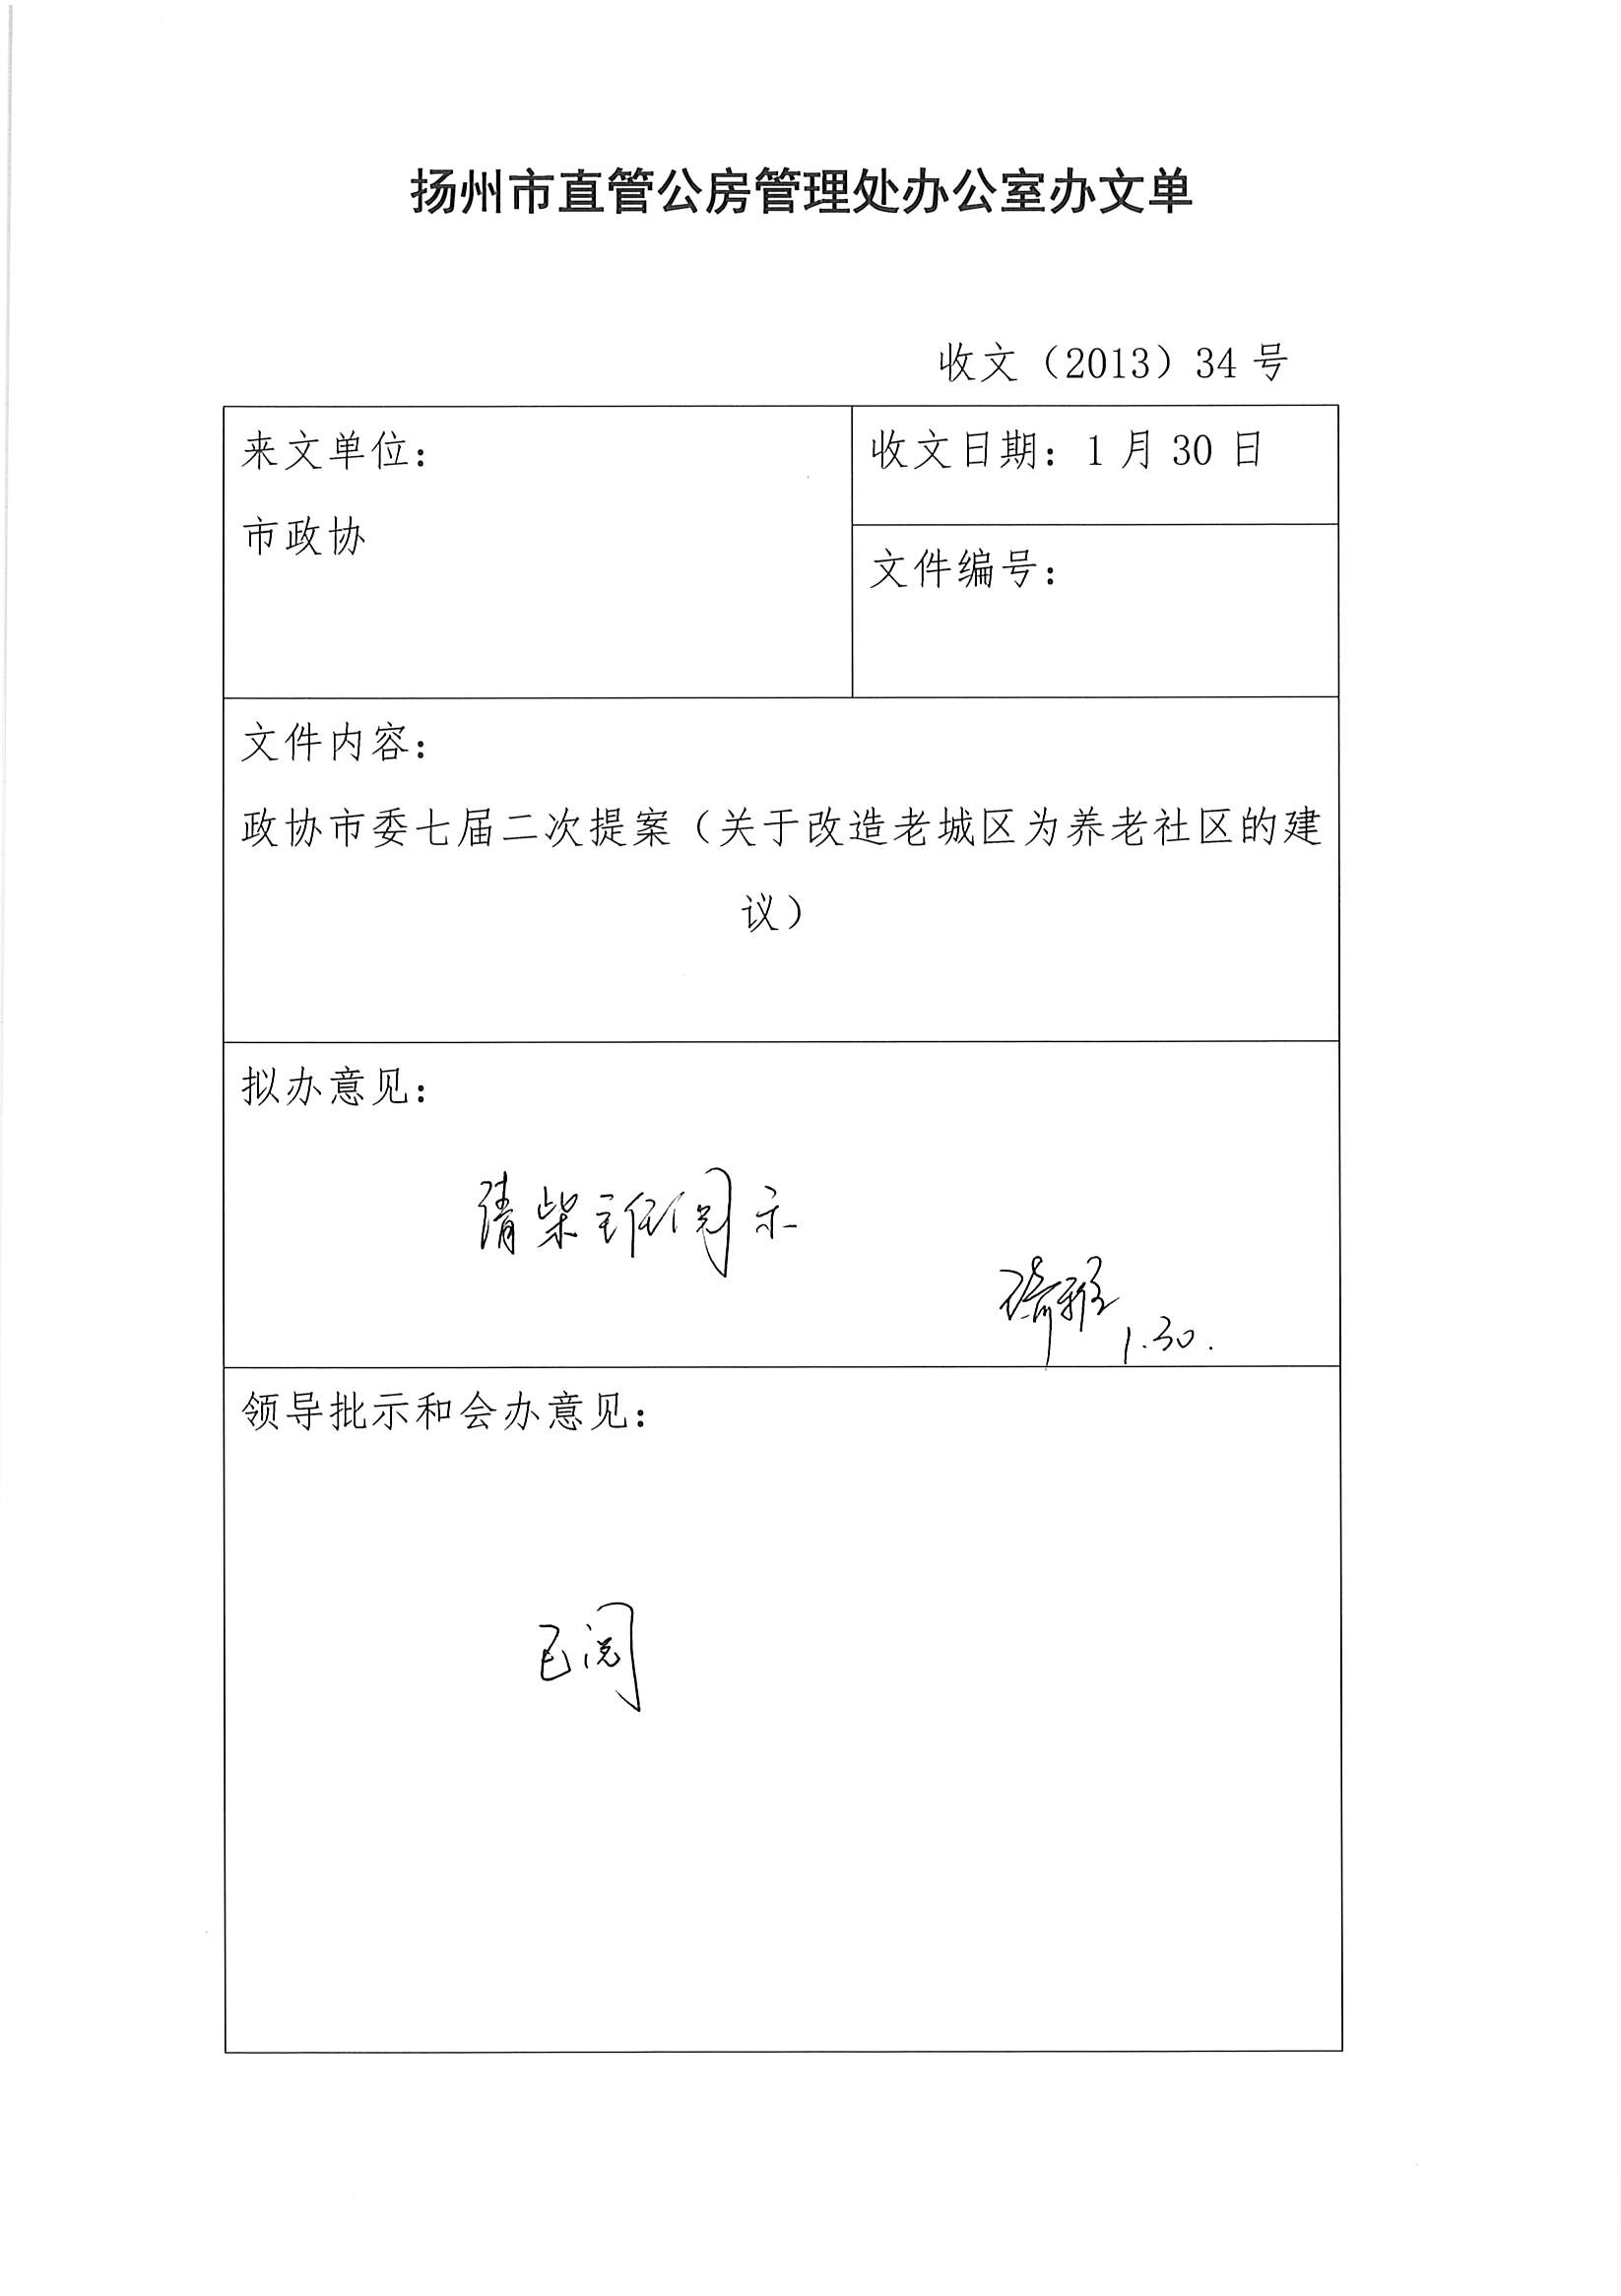 扬州市直管公房管理处办公室办文单
收文（2013）34 号
来文单位：
市政协
收文日期：1 月 30 日
文件编号：
文件内容：
政协市委七届二次提案（关于改造老城区为养老社区的建
议）
拟办意见：
请柴主任阅示
1.30.
领导批示和会办意见：
已阅